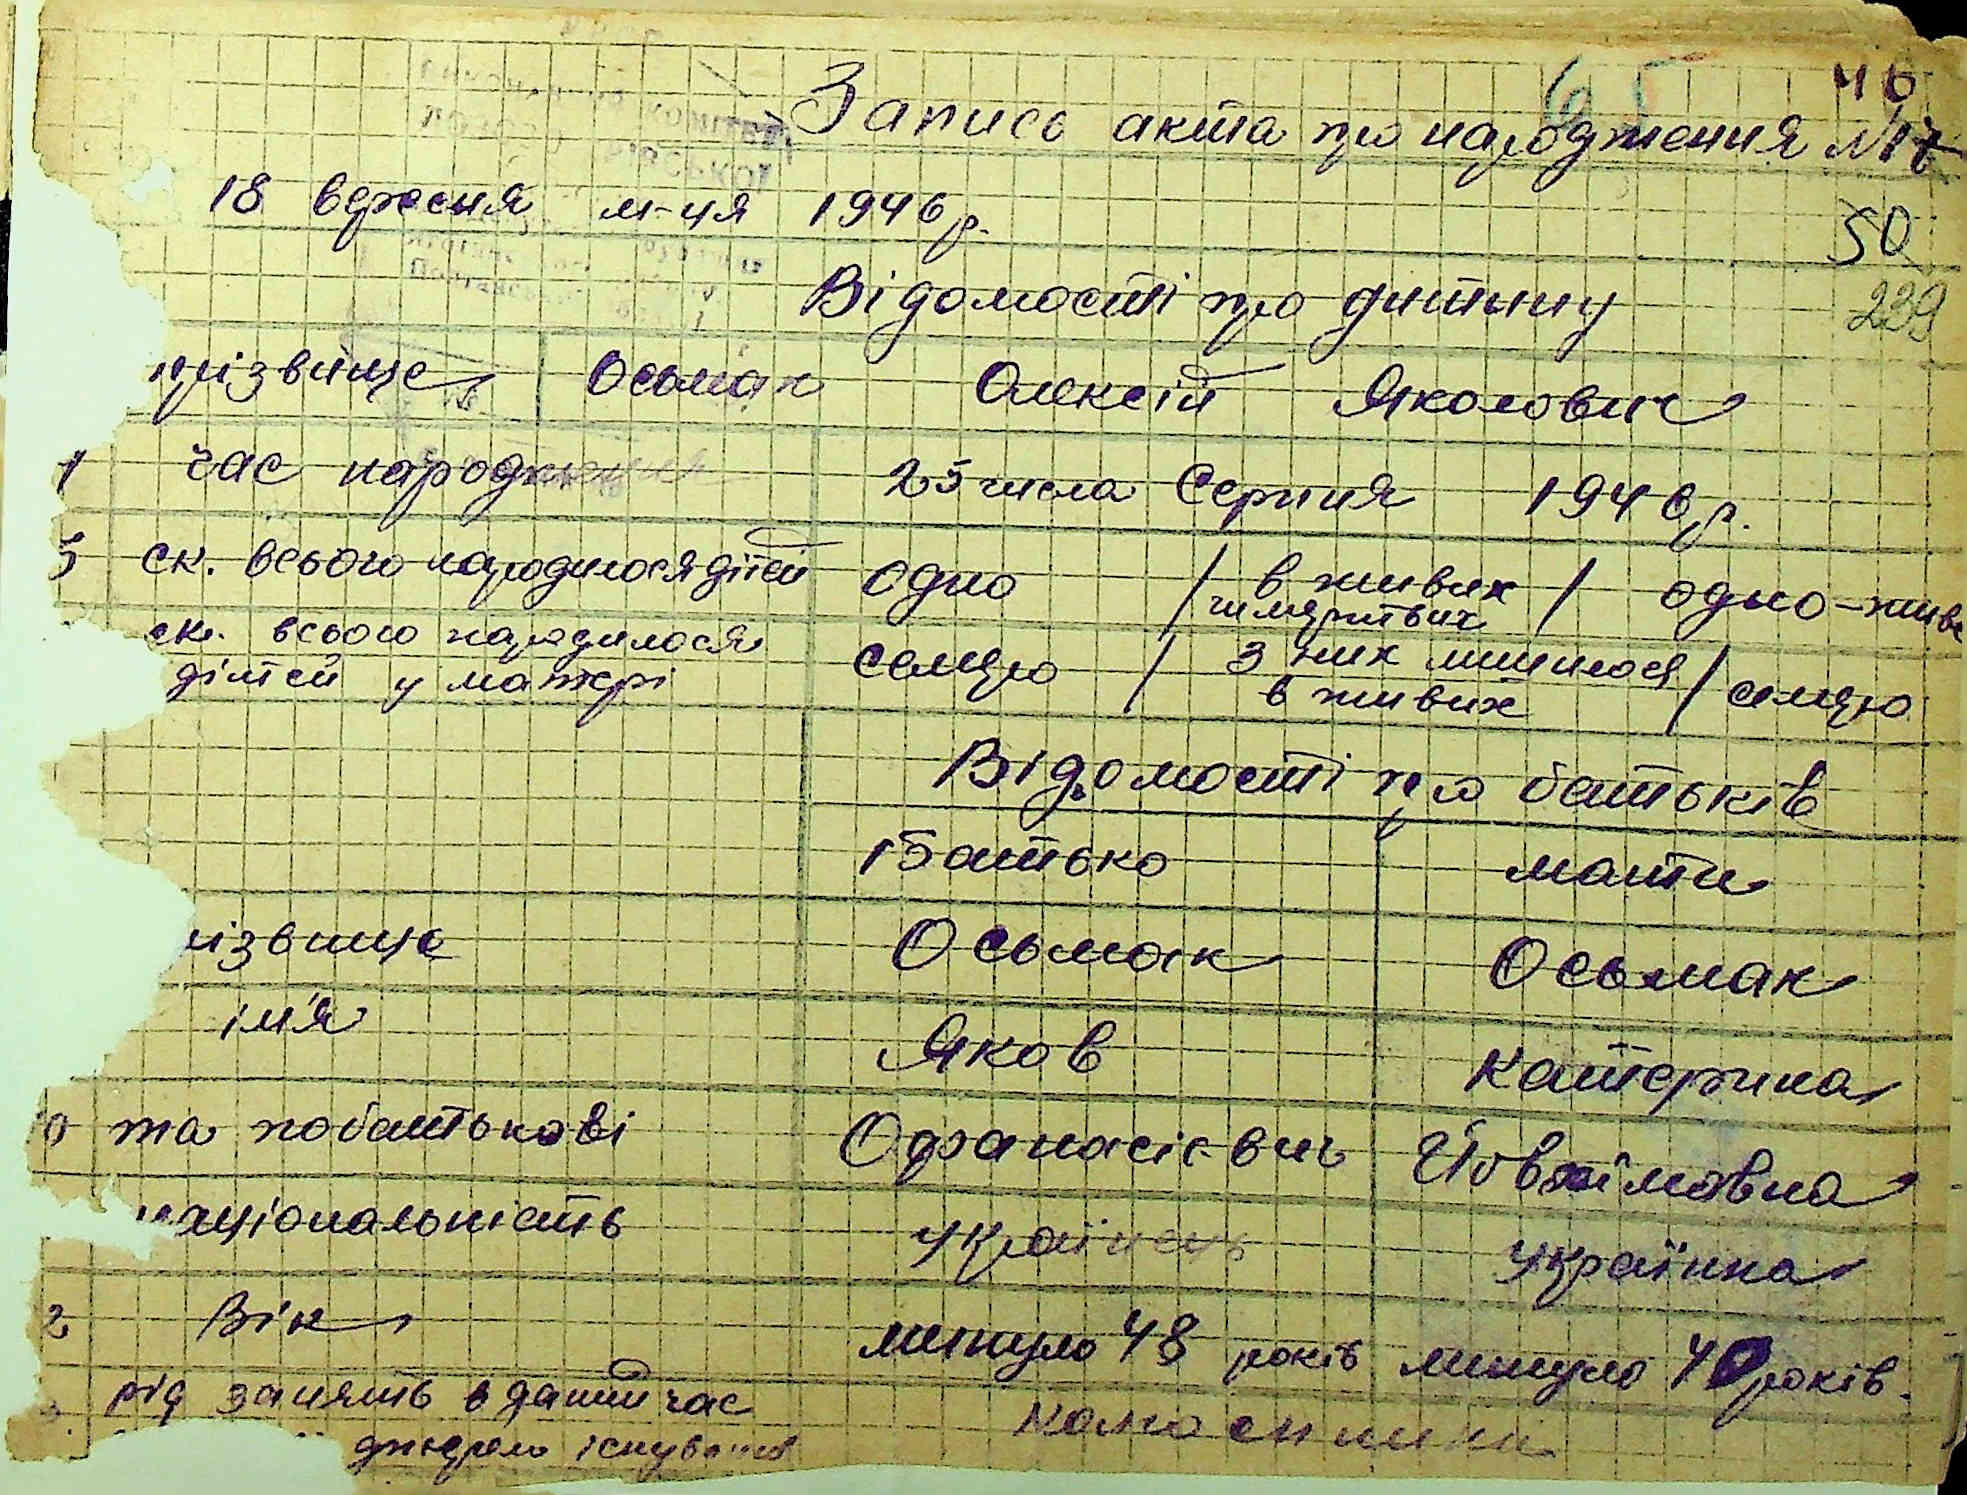 46
Запись акта про народження №17
18 вересня м-ця 1946 р.
50
239
Відомості про дитину
прізвище Осьмак Олексій Яковович
1 час народження 25 числа Серпня 1946 р.
5 ск. всього народилося дітей одно / в живих чи мертвих / одно-живе
ск. всього народилося дітей у матері семеро / з них лишилося в живих / семеро
Відомості про батьків
Батько мати
різвище Осьмак Осьмак
ім'я Яков Катерина
0 та побатькові Офанасієвич Йовхімовна
національність українець українка
2 Вік минуло 48 років минуло 40 років.
рід занять в даний час колгоспники
джерело існування